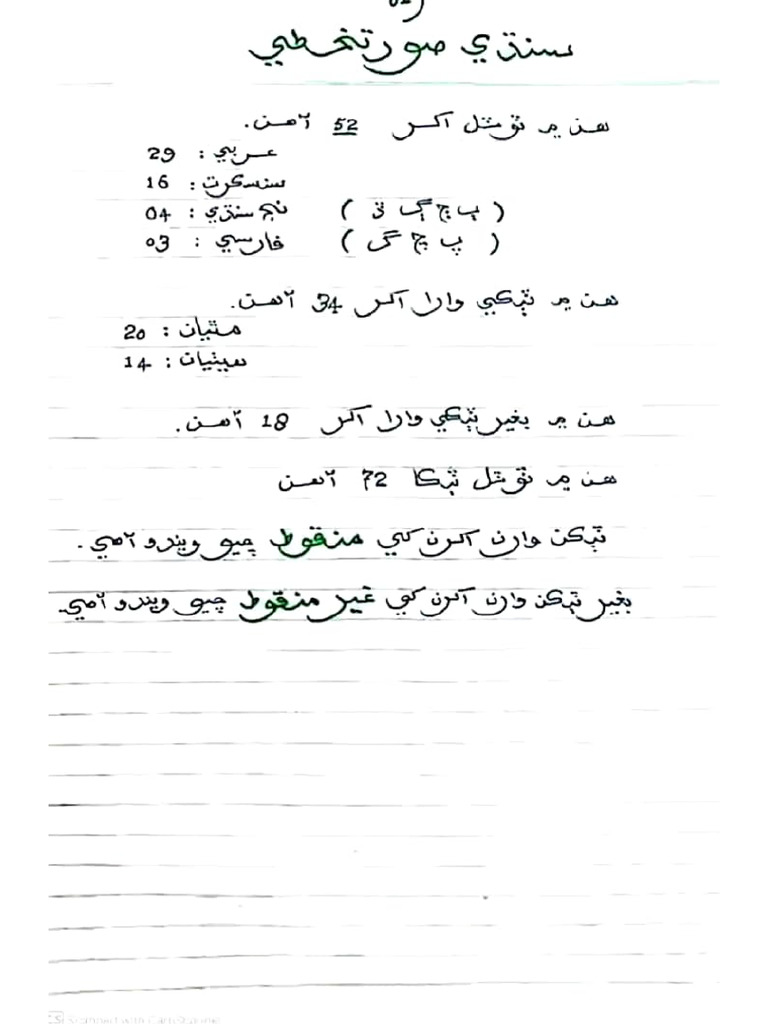 سنڌي صورتخطي
هن ۾ ٽوٽل اکر 52 آهن.
عربي : 29
سنسڪرت : 16
نج سنڌي : 04 ( ٻ ڄ ڳ ڏ )
فارسي : 03 ( پ چ گ )
هن ۾ ٽٻڪي وارا اکر 34 آهن.
مٿيان : 20
هيٺيان : 14
هن ۾ بغير ٽٻڪي وارا اکر 18 آهن.
هن ۾ ٽوٽل ٽٻڪا 72 آهن
ٽٻڪن وارن اکرن کي منقوط چيو ويندو آهي.
بغير ٽٻڪن وارن اکرن کي غير منقوط چيو ويندو آهي.